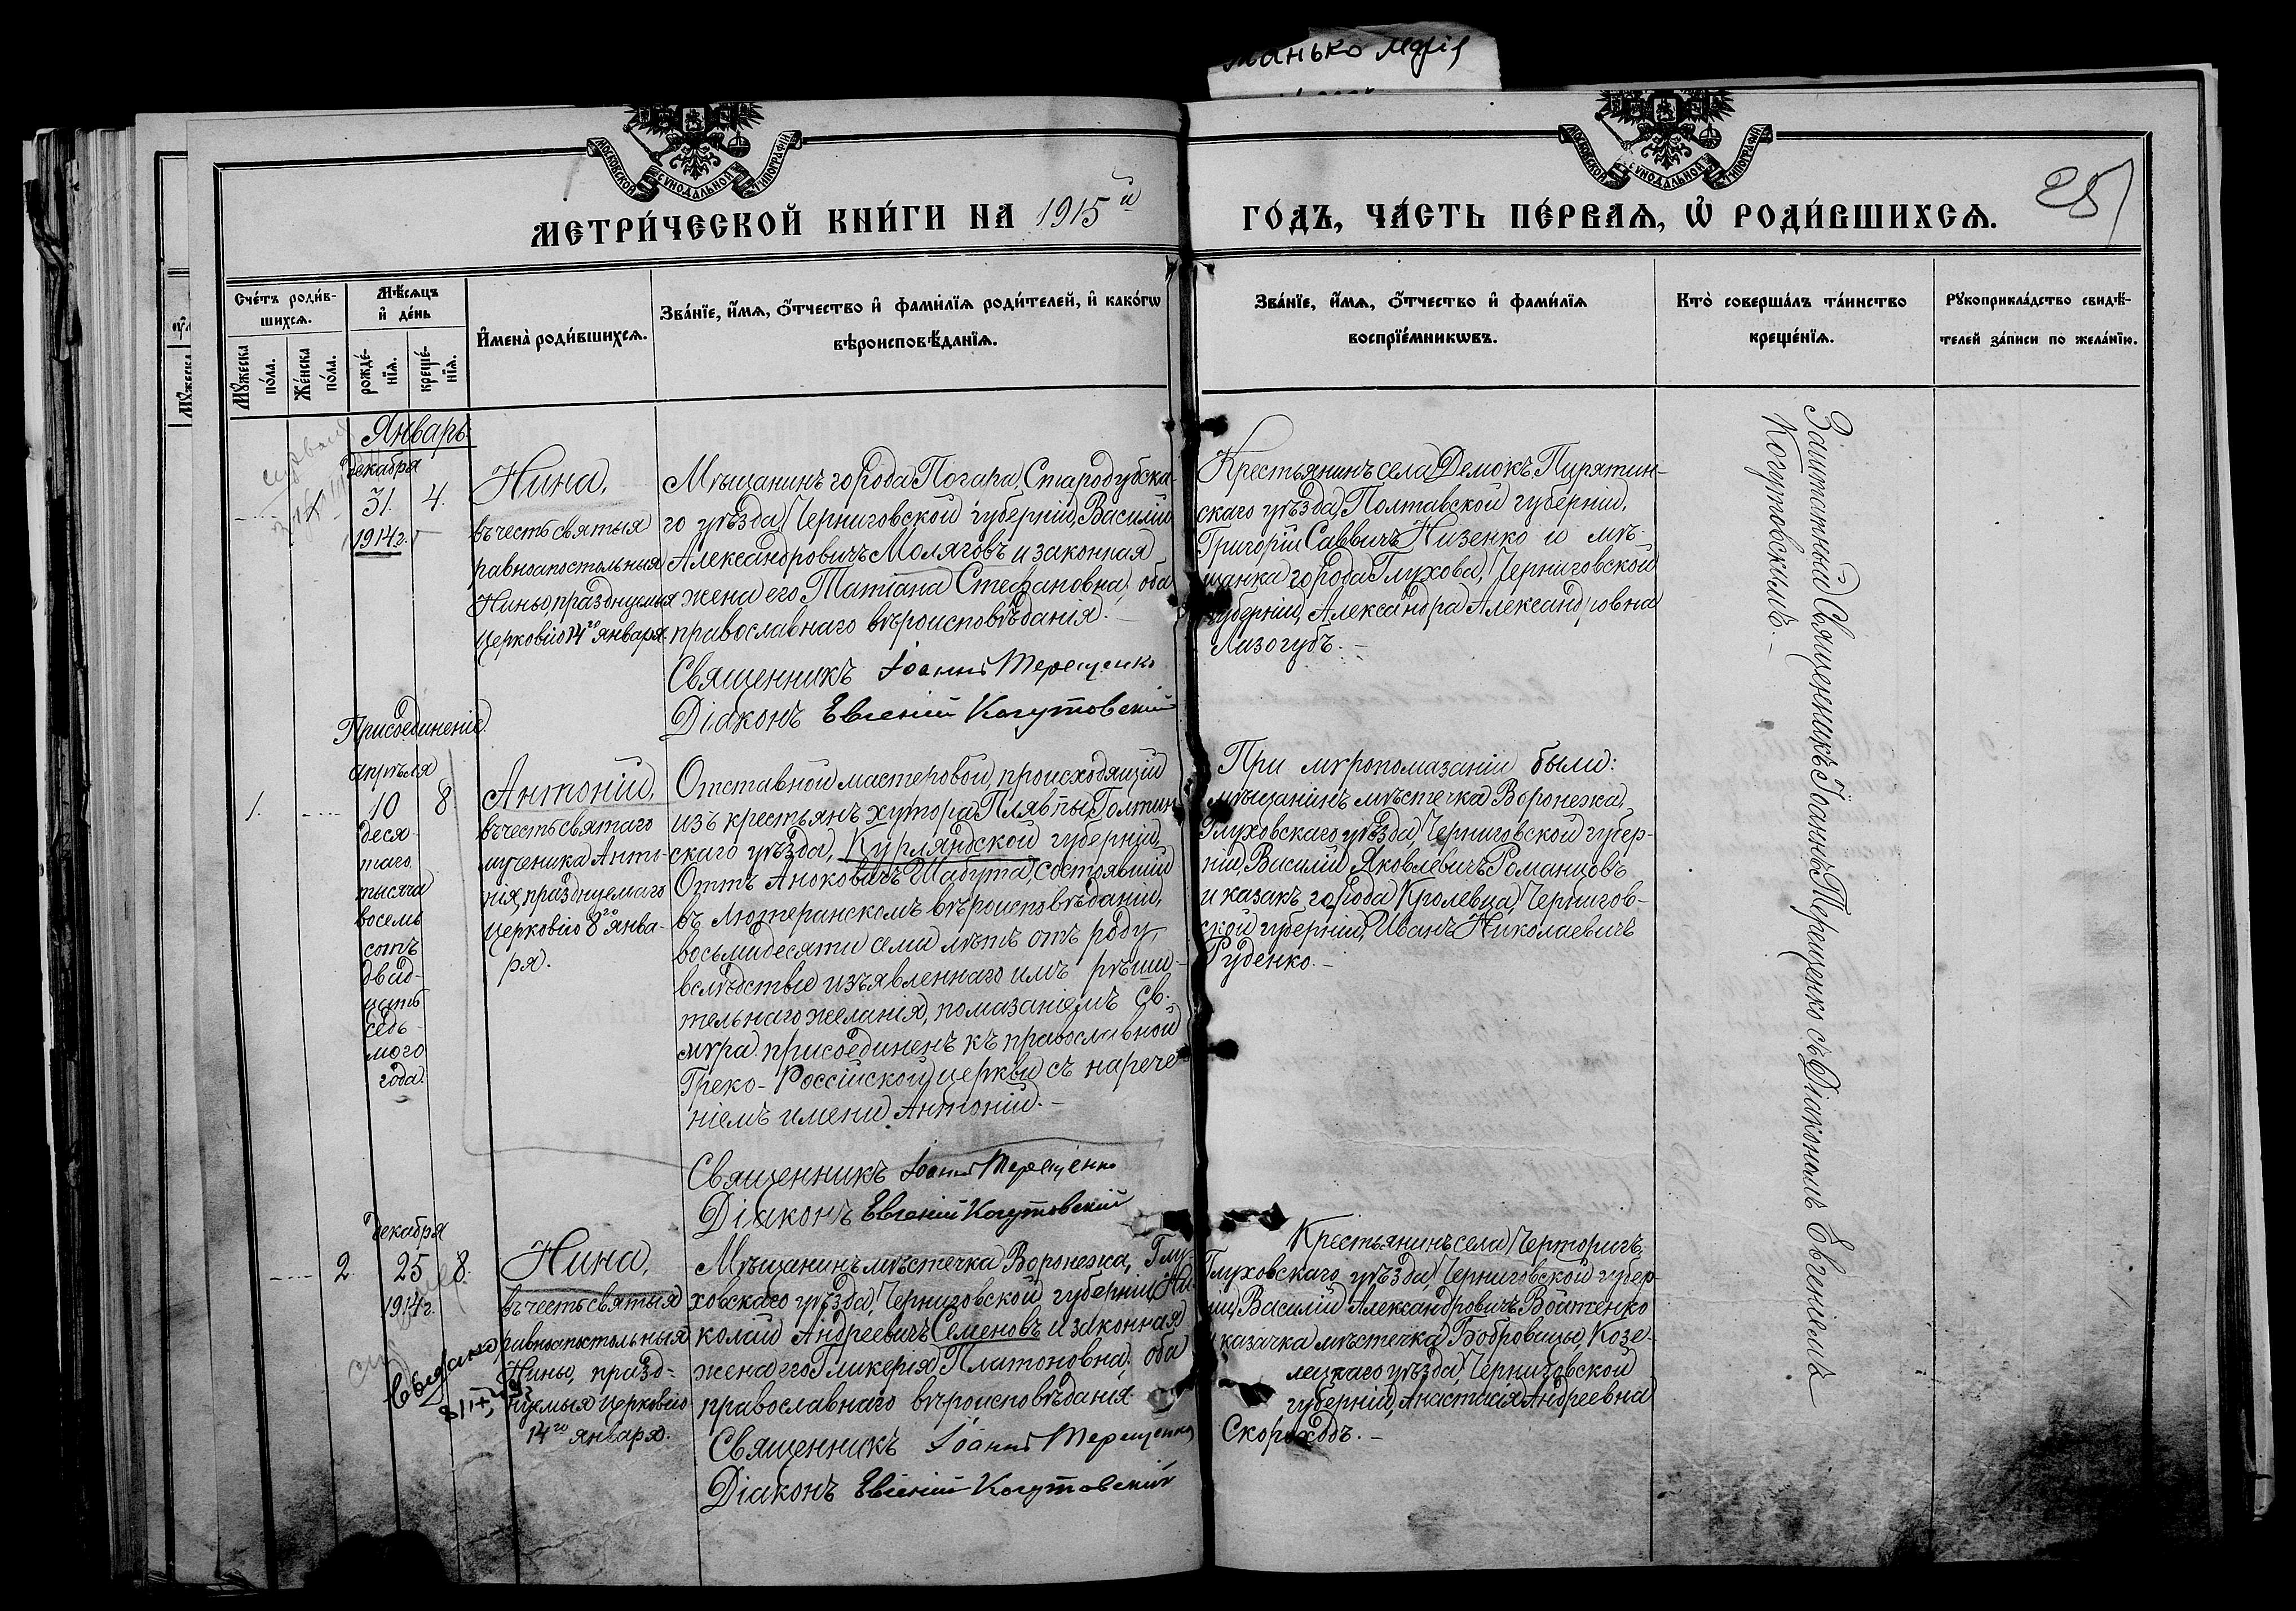 манько марія
МОСКОВСКОЙ СѴНОДАЛЬНОЙ ТИПОГРАФІИ
МОСКОВСКОЙ СѴНОДАЛЬНОЙ ТИПОГРАФІИ
МЕТРИ́ЧЕСКОЙ КНИ́ГИ НА 1915й
ГО́ДЪ, ЧА́СТЬ ПЕ́РВАѦ, Ѿ РОДИ́ВШИХСѦ.
25
Сче́тъ роди́в-
шихсѧ.
Мꙋ́жеска
по́ла.
Же́нска
по́ла.
Мѣ́сѧцъ
и҆ де́нь
рожде́-
нїѧ.
креще́-
нїѧ.
И҆мена̀ роди́вшихсѧ.
Зва́нїе, и҆́мѧ, ѻ҆́тчество и҆ фами́лїѧ роди́телей, и҆ како́гѡ
вѣроисповѣ́данїѧ.
Зва́нїе, и҆́мѧ, ѻ҆́тчество и҆ фами́лїѧ
воспрїе́мникѡвъ.
Кто̀ соверша́лъ та́инство
креще́нїѧ.
Рꙋкоприкла́дство свидѣ́-
телей за́писи по жела́нїю.
Январь
декабря
31.
1914 г.
4.
Нина,
въ честь святыя
равноапостольныя
Нины, празднуемыя
церковію 14го января.
Мѣщанинъ города Погара, Стародубска-
го уѣзда, Черниговской губерніи, Василій
Александровичъ Моляговъ и законная
жена его Татіана Стефановна, оба
православнаго вѣроисповѣданія.-
Священникъ Іоаннъ Терещенко
Діаконъ Евгеній Когутовскій
Крестьянинъ села Демокъ, Пирятин-
скаго уѣзда, Полтавской губерніи,
Григорій Саввичъ Низенко и мѣ-
щанка города Глухова, Черниговской
губерніи, Александра Александровна
Лизогубъ.-
Заштатный Священникъ Іоаннъ Терещенко съ Діакономъ Евгеніемъ
Когутовскимъ.-
Присоединеніе.
1.
апрѣля
10
деся-
таго
тысяча
восемь
сотъ
двад-
цать
седь-
мого
года.
8
Антоній,
въ честь святаго
мученика Анто-
нія, празднуемаго
церковію 8го янва-
ря.
Отставной мастеровой, происходящій
изъ крестьянъ хутора Плявпы, Голтин-
скаго уѣзда, Курляндской губерніи,
Оттъ Аноковичъ Шабута, состоявшій
въ лютеранскомъ вѣроисповѣданіи,
восьмидесяти семи лѣтъ отъ роду,
вслѣдствіе изъявленнаго имъ рѣши-
тельнаго желанія, помазаніемъ св.
мѵра присоединенъ къ православной
Греко-Россійской церкви съ нарече-
ніемъ имени Антоній.-
Священникъ Іоаннъ Терещенко
Діаконъ Евгеній Когутовскій
При мѵропомазаніи были:
мѣщанинъ мѣстечка Воронежа,
Глуховскаго уѣзда, Черниговской губер-
ніи, Василій Яковлевичъ Романцовъ
и казакъ города Кролевца, Чернигов-
ской губерніи, Иванъ Николаевичъ
Руденко.-
2.
декабря
25
1914 г.
8.
Нина,
въ честь святыя
равноапостольныя
Нины, празд-
нуемыя церковію
14го января.
Мѣщанинъ мѣстечка Воронежа, Глу-
ховскаго уѣзда, Черниговской губерніи, Ни-
колай Андреевичъ Семеновъ и законная
жена его Гликерія Платоновна, оба
православнаго вѣроисповѣданія
Священникъ Іоаннъ Терещенко
Діаконъ Евгеній Когутовскій
Крестьянинъ села Черторигъ,
Глуховскаго уѣзда, Черниговской губер-
ніи, Василій Александровичъ Войтенко
и казачка мѣстечка Бобровицы, Козе-
лецкаго уѣзда, Черниговской
губерніи, Анастасія Андреевна
Скороходъ.-